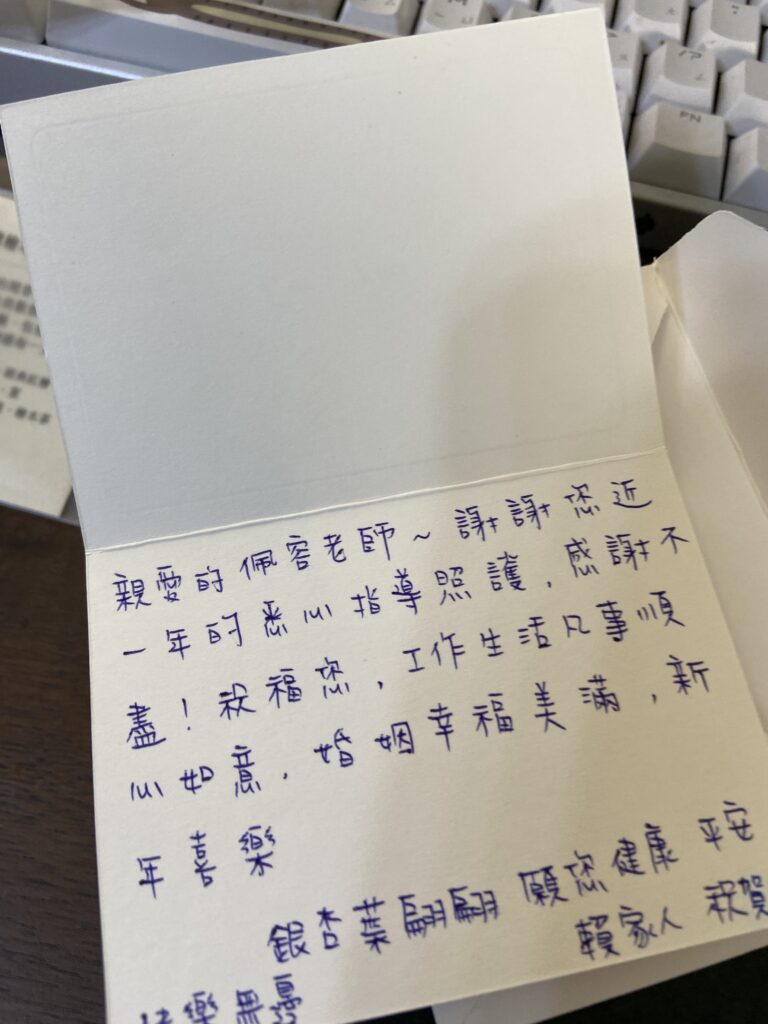 親愛的佩容老師～謝謝您近
一年的悉心指導照護，感謝不
盡！祝福您，工作生活凡事順
心如意，婚姻幸福美滿，新
年喜樂
銀杏葉翩翩 願您健康 平安
快樂無憂
賴家人 祝賀